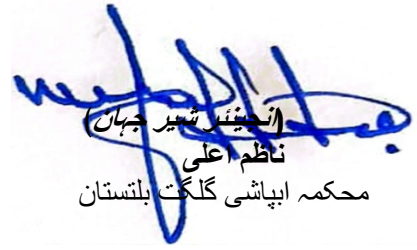 (انجینئر شیر جہان)
ناظم اعلی
محکمہ ابپاشی گلگت بلتستان